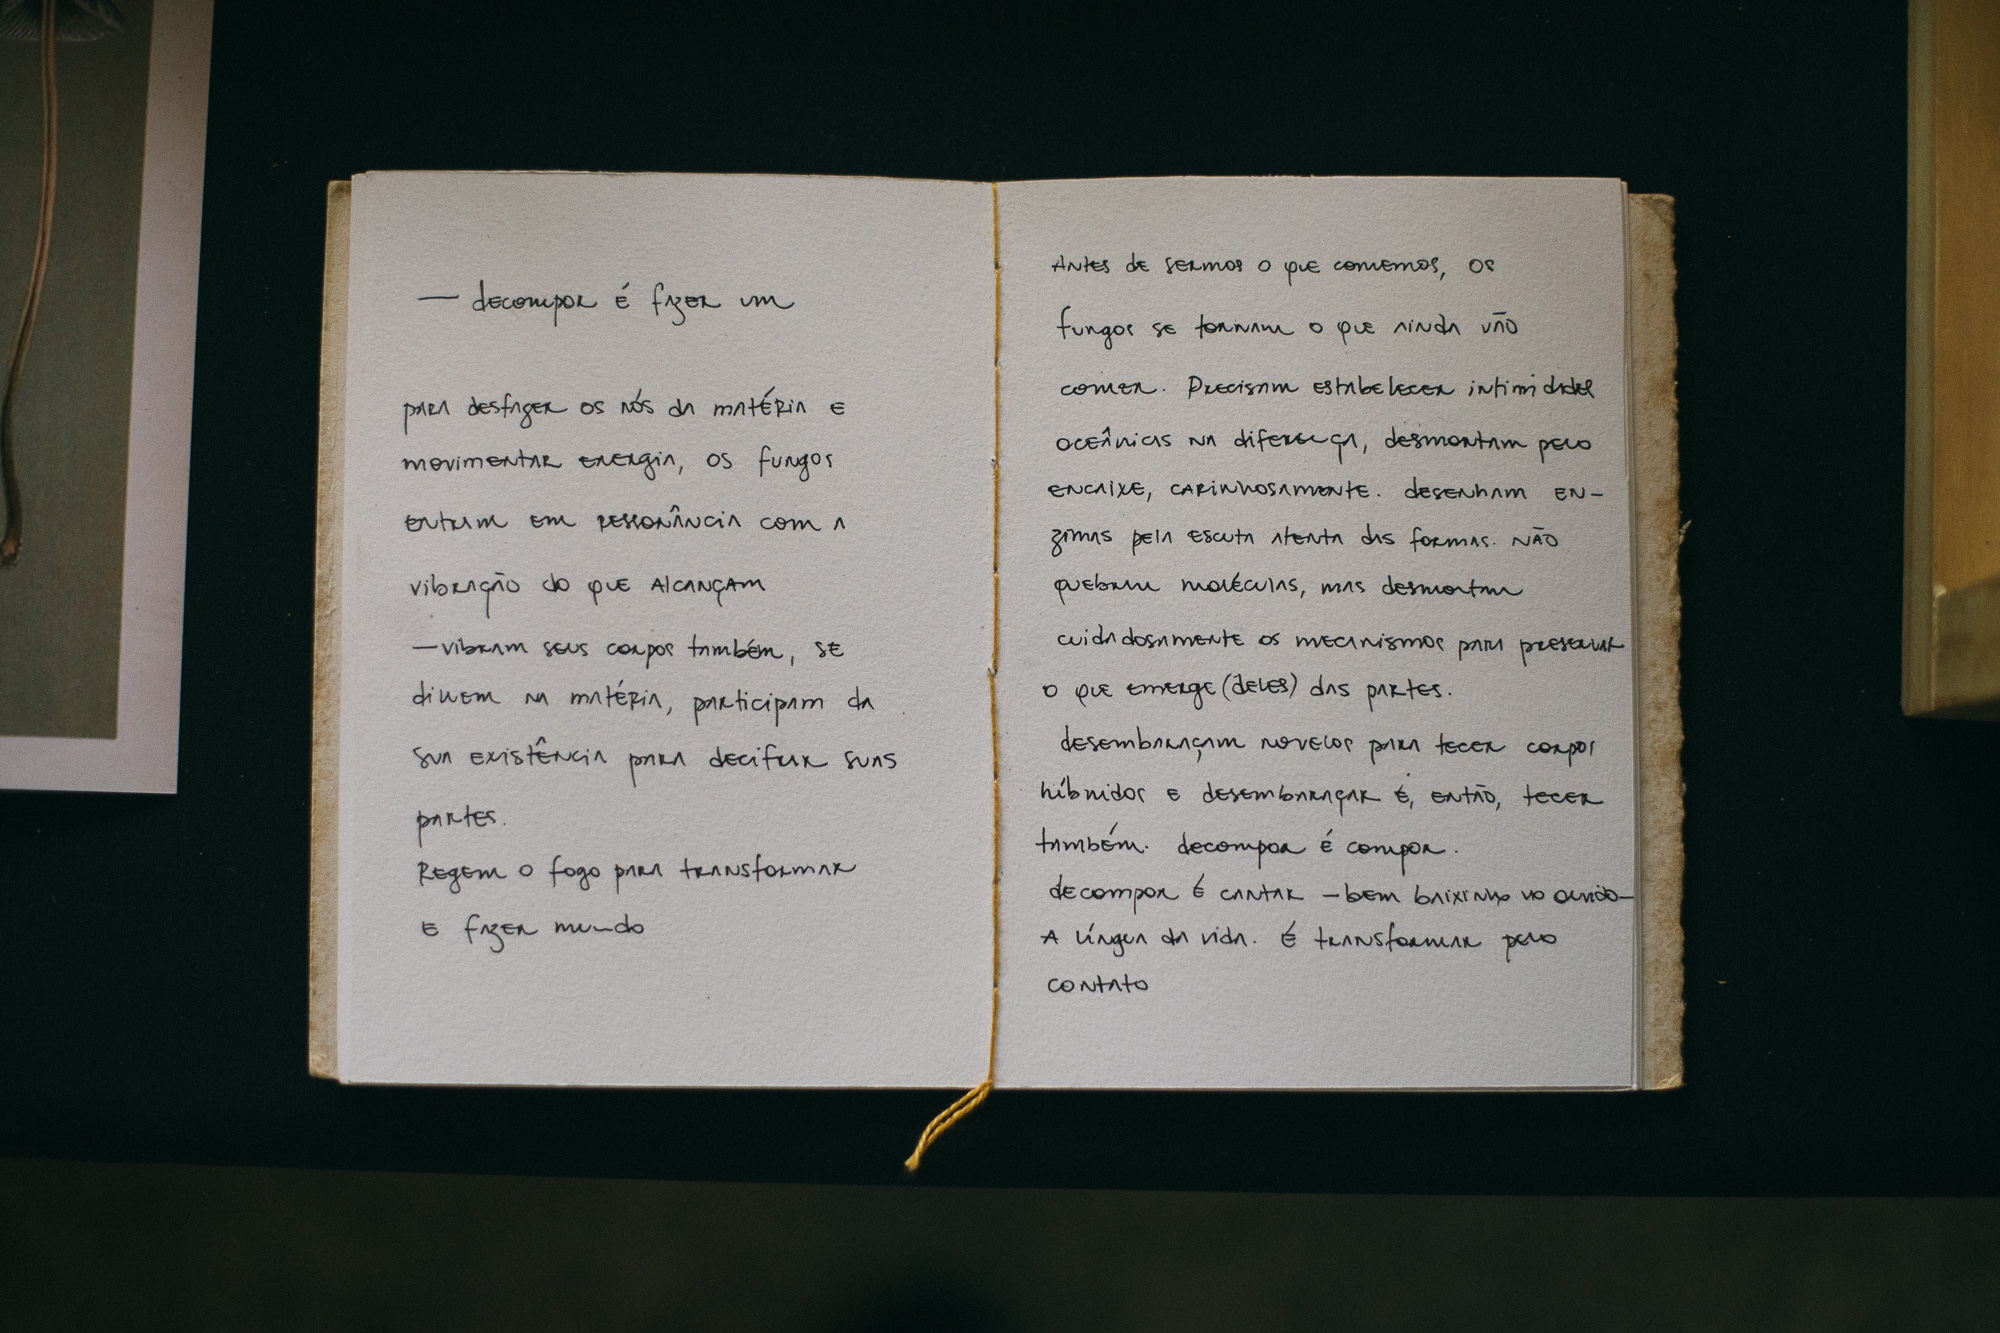 — decompor é fazer um
para desfazer os nós da matéria e
movimentar energia, os fungos
entram em ressonância com a
vibração do que Alcançam
— vibram seus corpos também, se
diluem na matéria, participam da
sua existência para decifrar suas
partes.
Regem o fogo para transformar
e fazer mundo
Antes de sermos o que comemos, os
fungos se tornam o que ainda vão
comer. Precisam estabelecer intimidades
oceânicas na diferença, desmontam pelo
encaixe, carinhosamente. desenham en-
zimas pela escuta atenta das formas. Não
quebram moléculas, mas desmontam
cuidadosamente os mecanismos para preservar
o que emerge (deles) das partes.
desembaraçam novelos para tecer corpos
híbridos e desembaraçar é, então, tecer
também. decompor é compor.
decompor é cantar — bem baixinho no ouvido —
A língua da vida. É transformar pelo
contato